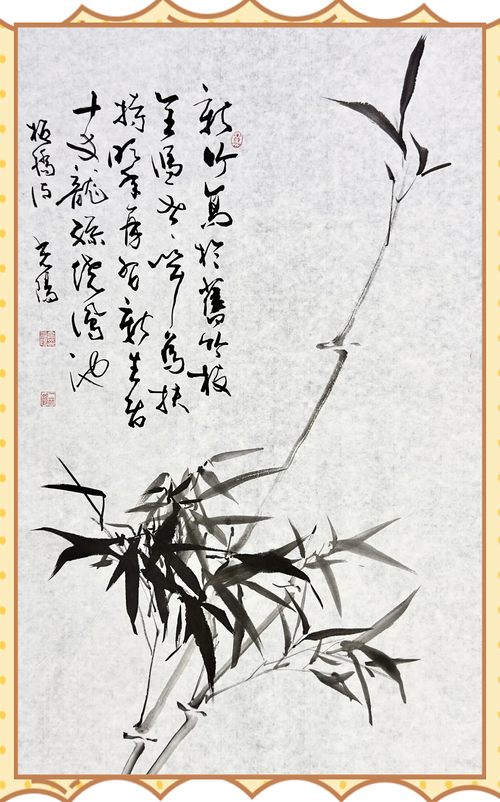 新竹高於舊竹枝
全憑老幹為扶
持明年再有新生者
十丈龍孫繞鳳池
板橋詩